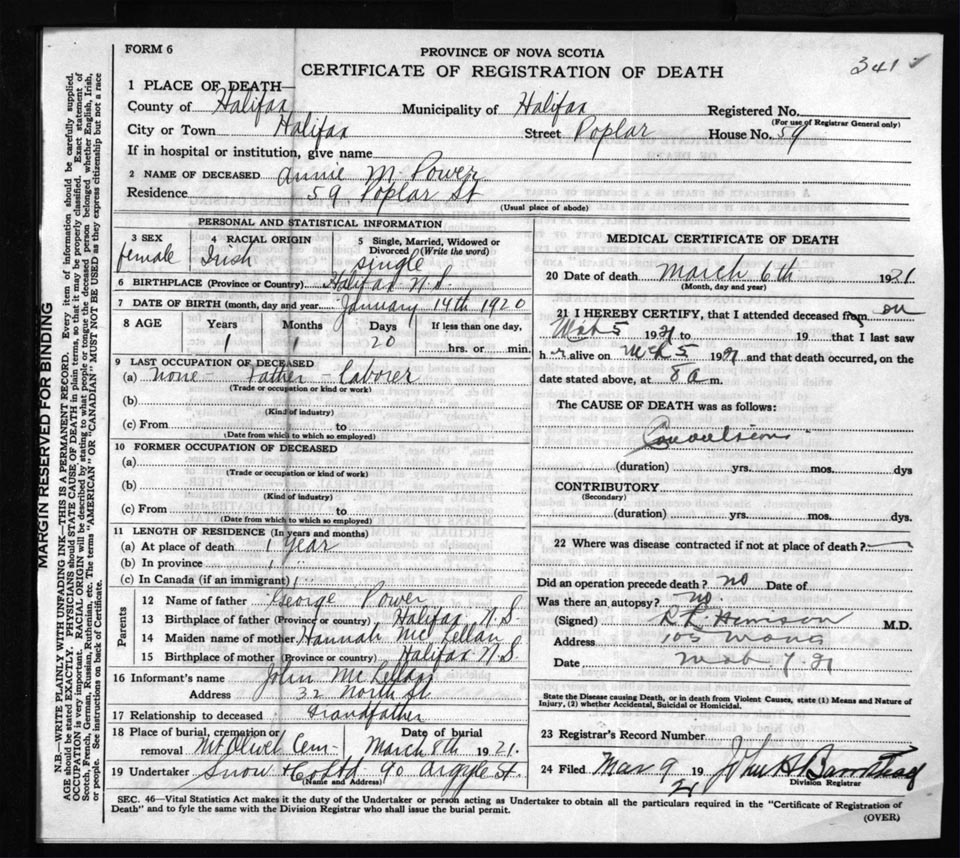 FORM 6
PROVINCE OF NOVA SCOTIA
CERTIFICATE OF REGISTRATION OF DEATH
341
1 PLACE OF DEATH—
County of Halifax Municipality of Halifax Registered No.
(For use of Registrar General only)
City or Town Halifax Street Poplar House No. 59
If in hospital or institution, give name
2 NAME OF DECEASED Annie M. Power
Residence 59 Poplar St
(Usual place of abode)
PERSONAL AND STATISTICAL INFORMATION
3 SEX female
4 RACIAL ORIGIN Irish
5 Single, Married, Widowed or Divorced (Write the word) single
6 BIRTHPLACE (Province or Country) Halifax N.S.
7 DATE OF BIRTH (month, day and year) January 14th 1920
8 AGE Years Months Days If less than one day,
1 1 20 hrs. or min.
9 LAST OCCUPATION OF DECEASED
(a) None - Father - Laborer
(Trade or occupation or kind of work)
(b)
(Kind of industry)
(c) From to
(Date from which to which so employed)
10 FORMER OCCUPATION OF DECEASED
(a)
(Trade or occupation or kind of work)
(b)
(Kind of industry)
(c) From to
(Date from which to which so employed)
11 LENGTH OF RESIDENCE (In years and months)
(a) At place of death 1 year
(b) In province 1 "
(c) In Canada (if an immigrant) 1 "
Parents
12 Name of father George Power
13 Birthplace of father (Province or country) Halifax N.S.
14 Maiden name of mother Hannah McLellan
15 Birthplace of mother (Province or country) Halifax N.S.
16 Informant's name John McLellan
Address 32 North St
17 Relationship to deceased Grandfather
18 Place of burial, cremation or removal Mt Olivet Cem- Date of burial March 8th 1921.
19 Undertaker Snow 90 Argyle St.
(Name and Address)
MEDICAL CERTIFICATE OF DEATH
20 Date of death March 6th 1921
(Month, day and year)
21 I HEREBY CERTIFY, that I attended deceased from on
Mch 5 1921 to 19 that I last saw
h er alive on Mch 5 1921 and that death occurred, on the
date stated above, at 8 a m.
The CAUSE OF DEATH was as follows:
Convulsions
(duration) yrs. mos. dys
CONTRIBUTORY
(Secondary)
(duration) yrs. mos. dys.
22 Where was disease contracted if not at place of death?
Did an operation precede death? no Date of
Was there an autopsy? no.
(Signed) M.D.
Address 105
Date Mch. 7. 21
State the Disease causing Death, or in death from Violent Causes, state (1) Means and Nature of
Injury, (2) whether Accidental, Suicidal or Homicidal.
23 Registrar's Record Number
24 Filed Mar 9 19 21 John H Barnstead
Division Registrar
SEC. 46—Vital Statistics Act makes it the duty of the Undertaker or person acting as Undertaker to obtain all the particulars required in the "Certificate of Registration of
Death" and to fyle the same with the Division Registrar who shall issue the burial permit.
(OVER)
MARGIN RESERVED FOR BINDING
N.B.—WRITE PLAINLY WITH UNFADING INK—THIS IS A PERMANENT RECORD. Every item of information should be carefully supplied.
AGE should be stated EXACTLY. PHYSICIANS should STATE CAUSE OF DEATH in plain terms, so that it may be properly classified. Exact statement of
OCCUPATION is very important. RACIAL ORIGIN will be described by stating to what people or tongue the deceased person belonged whether English, Irish,
Scotch, French, German, Russian, Ruthenian, etc. The terms "AMERICAN" OR "CANADIAN" MUST NOT BE USED as they express citizenship but not a race
or people. See instructions on back of Certificate.